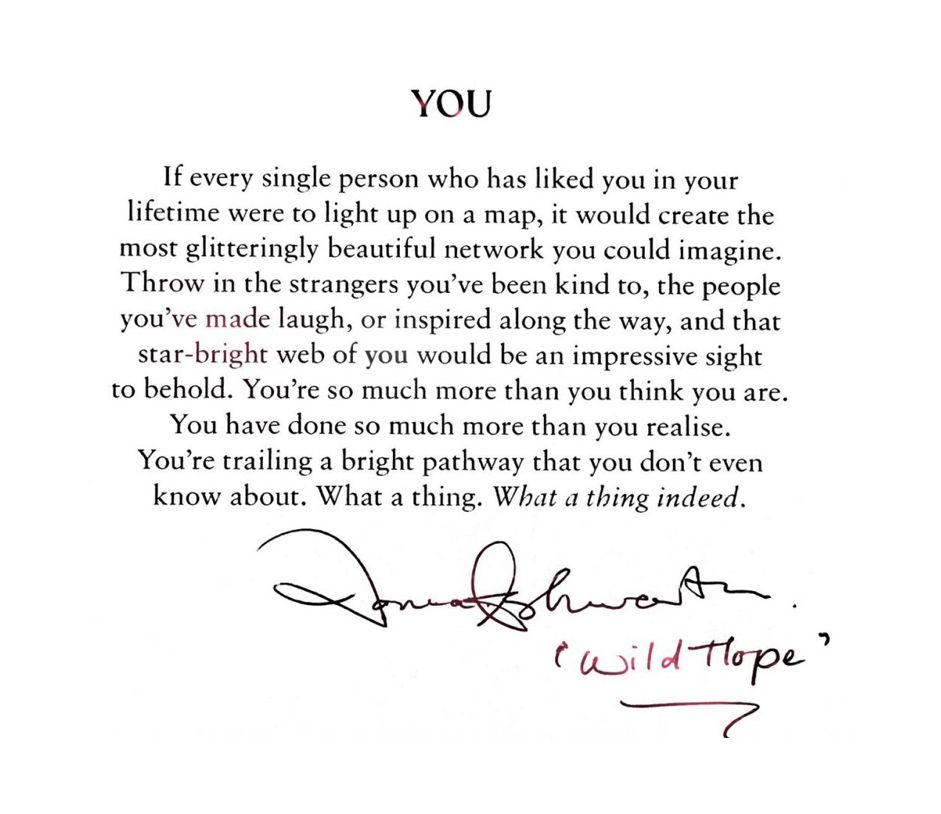 YOU
If every single person who has liked you in your
lifetime were to light up on a map, it would create the
most glitteringly beautiful network you could imagine.
Throw in the strangers you’ve been kind to, the people
you’ve made laugh, or inspired along the way, and that
star-bright web of you would be an impressive sight
to behold. You’re so much more than you think you are.
You have done so much more than you realise.
You’re trailing a bright pathway that you don’t even
know about. What a thing. What a thing indeed.
Donna Ashworth.
‘Wild Hope’